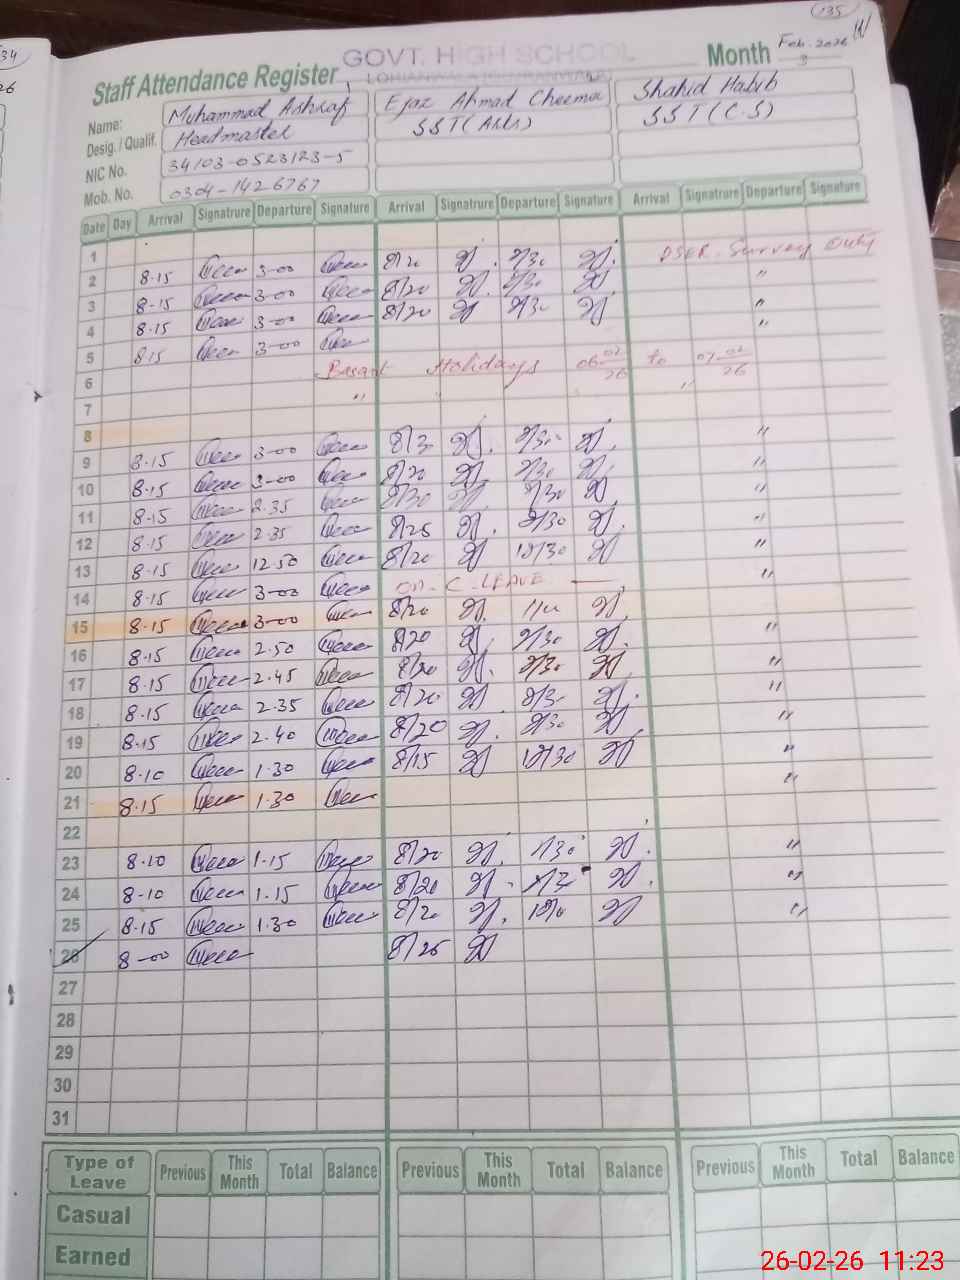 34
135
GOVT. HIGH SCHOOL
Staff Attendance Register
Month Feb. 2026
3
Name: Muhammad Ashraf Ejaz Ahmad Cheema Shahid Habib
Desig. / Qualif. Headmaster SST (Arts) SST (C.S)
NIC No. 34103-0523123-5
Mob. No. 0304-1426767
Date Day Arrival Signatrure Departure Signature Arrival Signatrure Departure Signature Arrival Signatrure Departure Signature
1
2 8-15 3-00 8/20 2/30 Survey Duty
3 8-15 3-00 8/20 2/30 "
4 8-15 3-00 8/20 2/30 "
5 8.15 3-00 "
6 Basant Holidays 06-02/26 to 07-02/26
7 " "
8
9 8-15 3-00 8/30 2/30 "
10 8-15 3-00 8/20 2/30 "
11 8-15 2.35 8/30 2/30 "
12 8-15 2.35 8/25 2/30 "
13 8-15 12-50 8/20 12/30 "
14 8-15 3-00 on C. LEAVE "
15 8-15 3-00 8/20
16 8-15 2.50 8/20 2/30 "
17 8-15 2.45 8/20 2/30 "
18 8-15 2.35 8/20 2/30 "
19 8-15 2.40 8/20 2/30 "
20 8-10 1.30 8/15 12/30 "
21 8-15 1.30 "
22
23 8-10 1.15 8/20 1/30 "
24 8-10 1.15 8/20 "
25 8-15 1.30 8/20 "
26 8-00 8/25
27
28
29
30
31
Type of Leave Previous This Month Total Balance Previous This Month Total Balance Previous This Month Total Balance
Casual
Earned
26-02-26 11:23